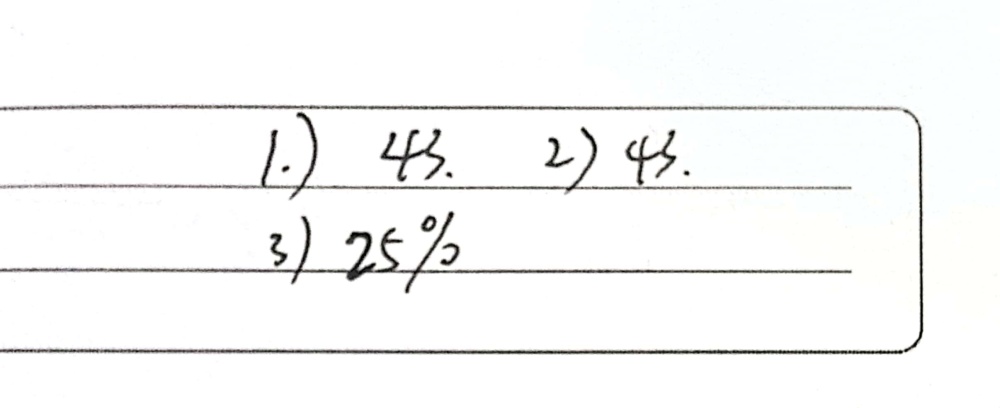 1.) 43. 2) 43.
3) 25%